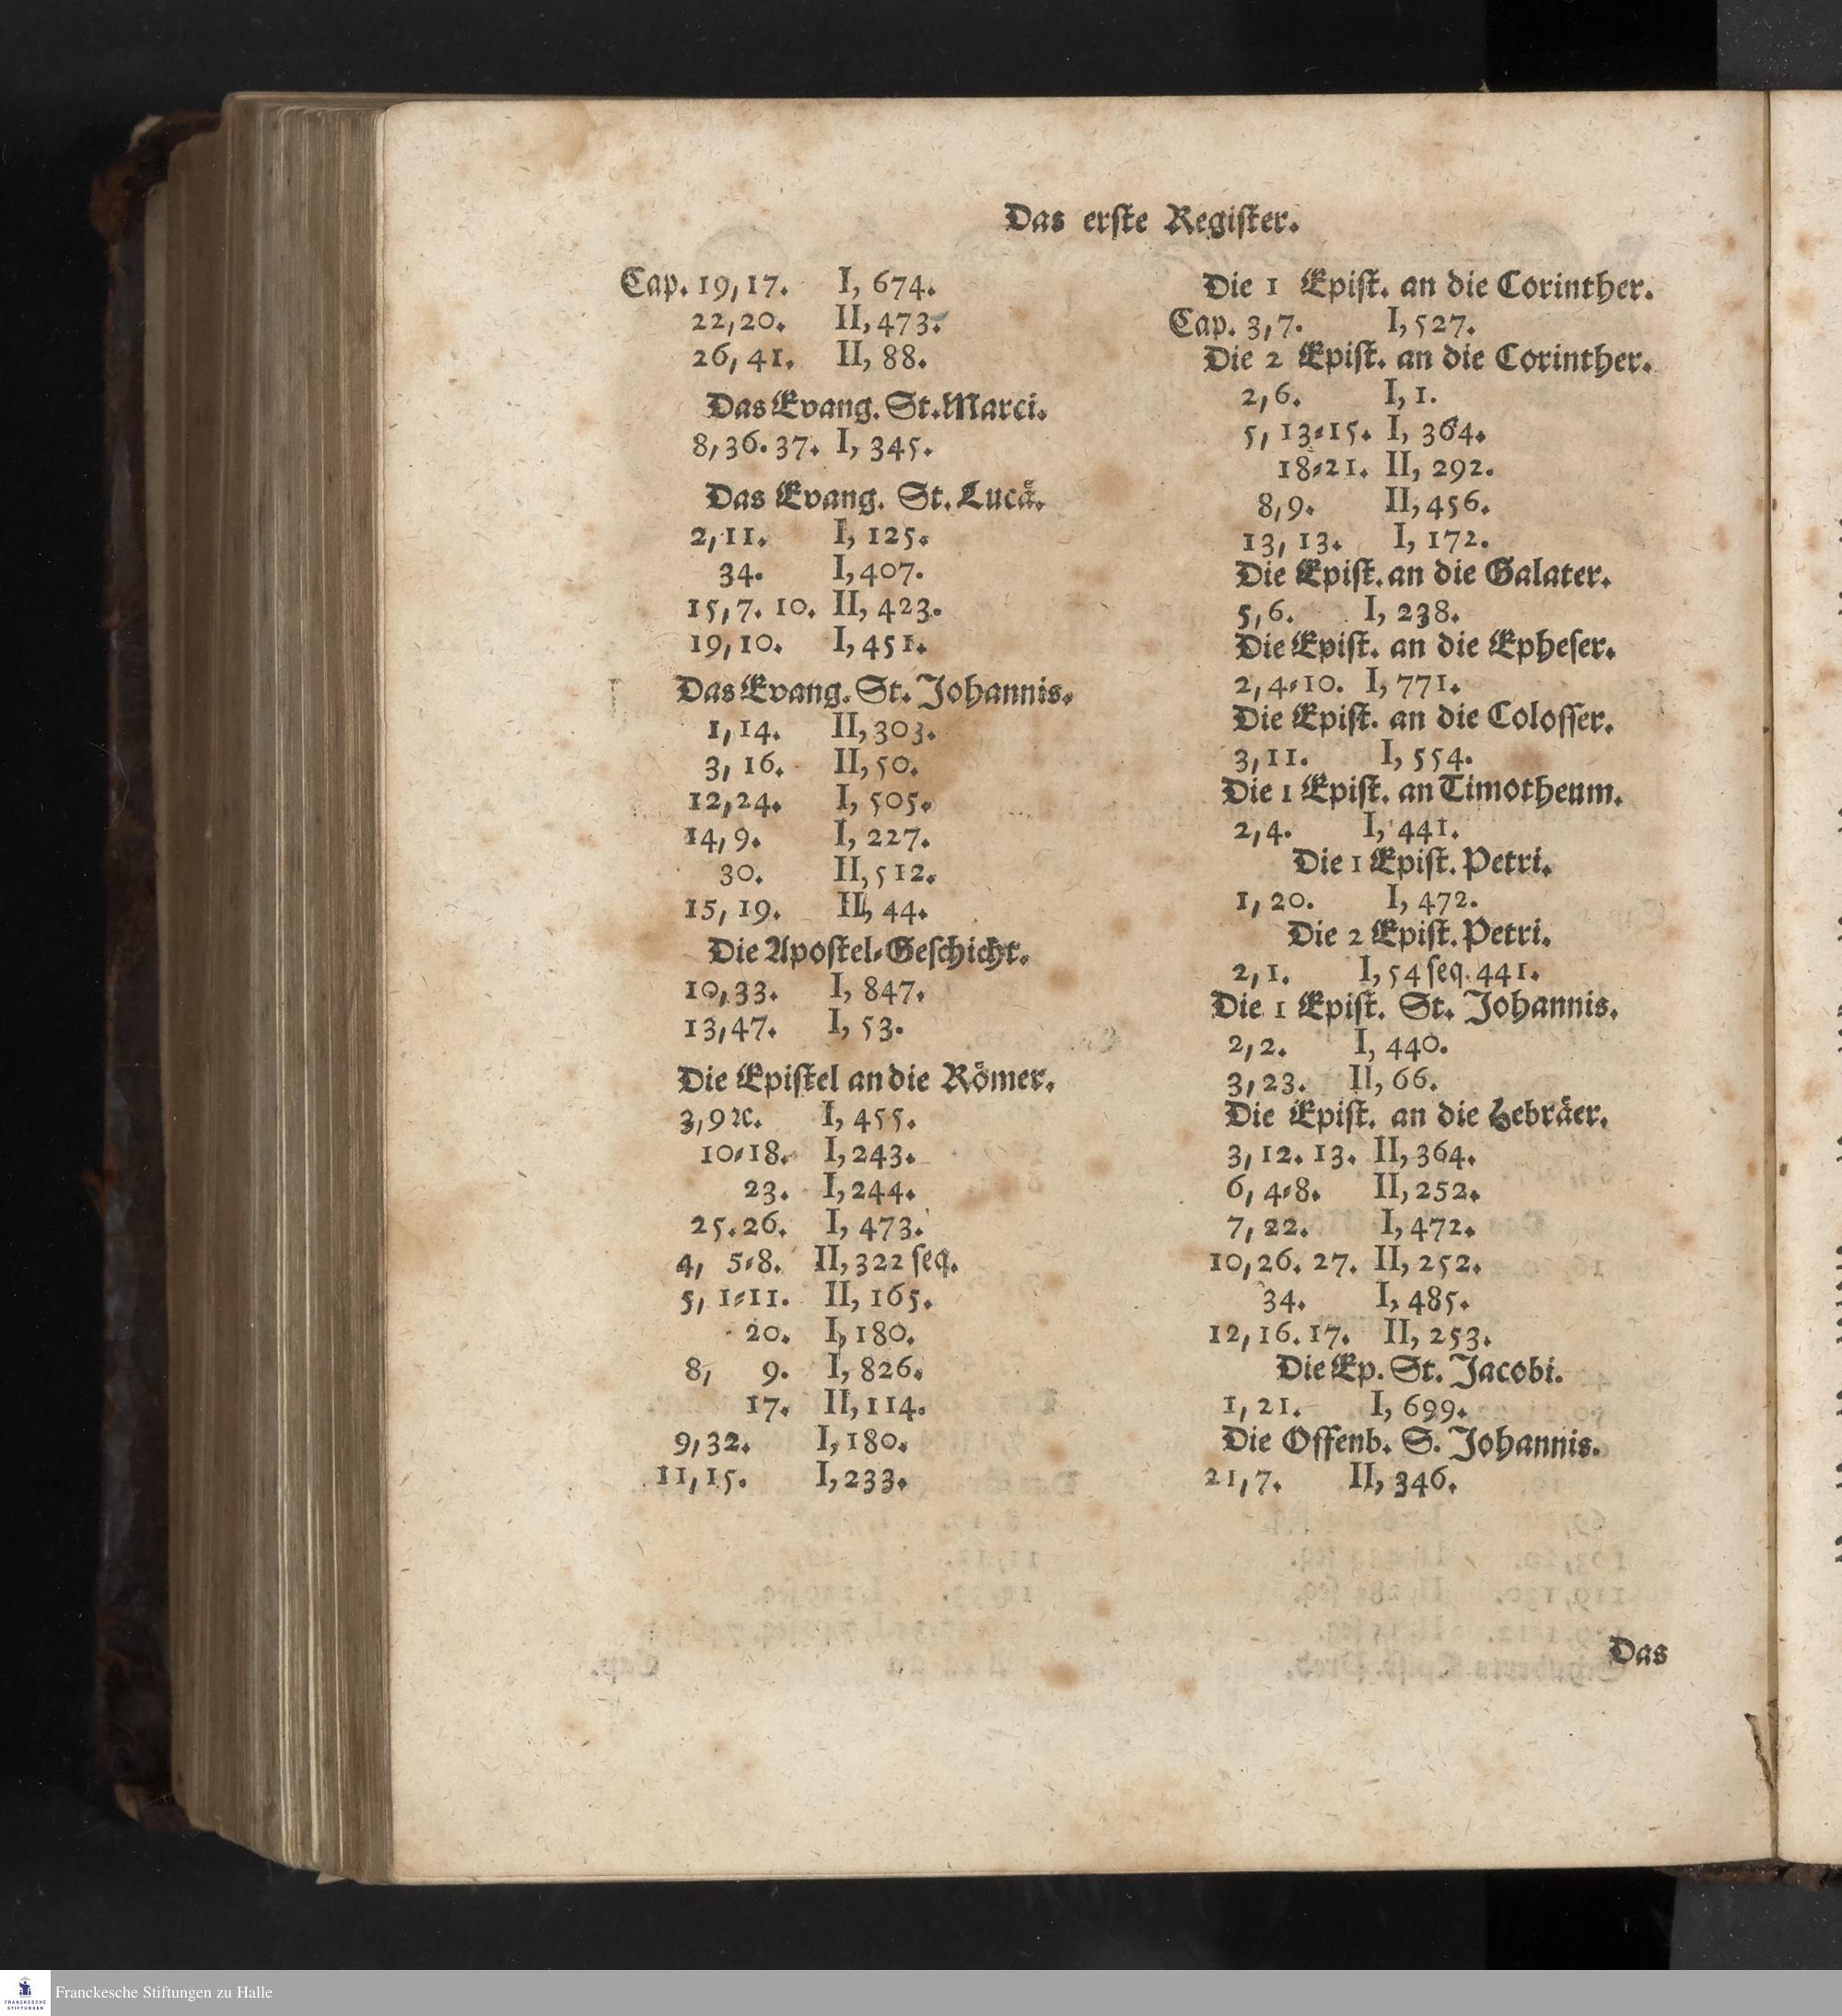 Das erſte Regiſter.
Cap. 19, 17. I, 674.
22, 20. II, 473.
26, 41. II, 88.
Das Evang. St. Marci.
8, 36. 37. I, 345.
Das Evang. St. Lucaͤ.
2, 11. I, 125.
34. I, 407.
15, 7. 10. II, 423.
19, 10. I, 451.
Das Evang. St. Johannis.
1, 14. II, 303.
3, 16. II, 50.
12, 24. I, 505.
14, 9. I, 227.
30. II, 512.
15, 19. II, 44.
Die Apoſtel⸗Geſchicht.
10, 33. I, 847.
13, 47. I, 53.
Die Epiſtel an die Roͤmer.
3, 9 ꝛc. I, 455.
10⸗18. I, 243.
23. I, 244.
25. 26. I, 473.
4, 5⸗8. II, 322 ſeq.
5, 1⸗11. II, 165.
20. I, 180.
8, 9. I, 826.
17. II, 114.
9, 32. I, 180.
11, 15. I, 233.
Die 1 Epiſt. an die Corinther.
Cap. 3, 7. I, 527.
Die 2 Epiſt. an die Corinther.
2, 6. I, 1.
5, 13⸗15. I, 364.
18⸗21. II, 292.
8, 9. II, 456.
13, 13. I, 172.
Die Epiſt. an die Galater.
5, 6. I, 238.
Die Epiſt. an die Epheſer.
2, 4⸗10. I, 771.
Die Epiſt. an die Coloſſer.
3, 11. I, 554.
Die 1 Epiſt. an Timotheum.
2, 4. I, 441.
Die 1 Epiſt. Petri.
1, 20. I, 472.
Die 2 Epiſt. Petri.
2, 1. I, 54 ſeq. 441.
Die 1 Epiſt. St. Johannis.
2, 2. I, 440.
3, 23. II, 66.
Die Epiſt. an die Hebraͤer.
3, 12. 13. II, 364.
6, 4⸗8. II, 252.
7, 22. I, 472.
10, 26. 27. II, 252.
34. I, 485.
12, 16. 17. II, 253.
Die Ep. St. Jacobi.
1, 21. I, 699.
Die Offenb. S. Johannis.
21, 7. II, 346.
Das
Franckesche Stiftungen zu Halle
FRANCKESCHE
STIFTUNGEN